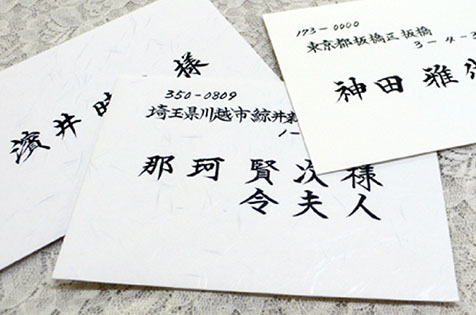 濱井
様
350-0809
埼玉県川越市鯨井新
1-
那珂賢次様
令夫人
173-0000
東京都板橋区板橋
3-4-3
神田雅